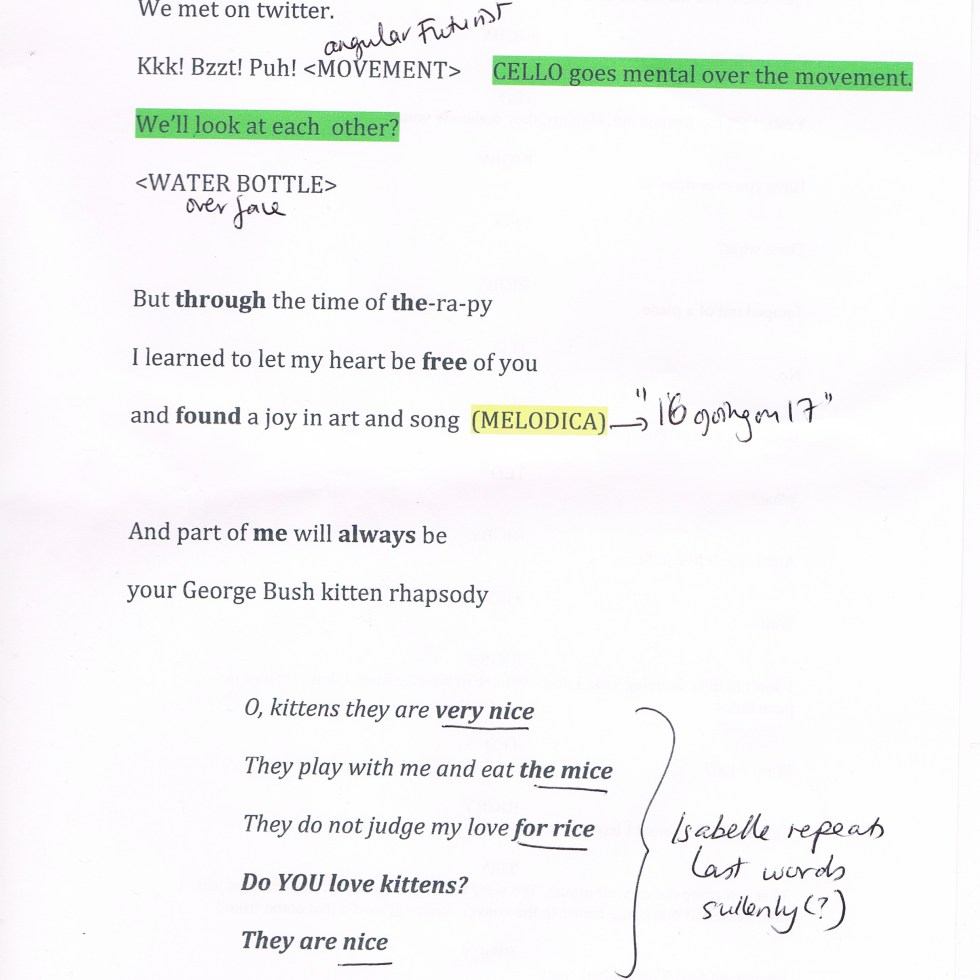 We met on twitter.
angular Futurist
Kkk! Bzzt! Puh! <MOVEMENT> CELLO goes mental over the movement.
We'll look at each other?
<WATER BOTTLE>
over face
But through the time of the-ra-py
I learned to let my heart be free of you
and found a joy in art and song (MELODICA) → "16 going on 17"
And part of me will always be
your George Bush kitten rhapsody
O, kittens they are very nice
They play with me and eat the mice
They do not judge my love for rice
Do YOU love kittens?
They are nice
Isabelle repeats
last words
sullenly(?)